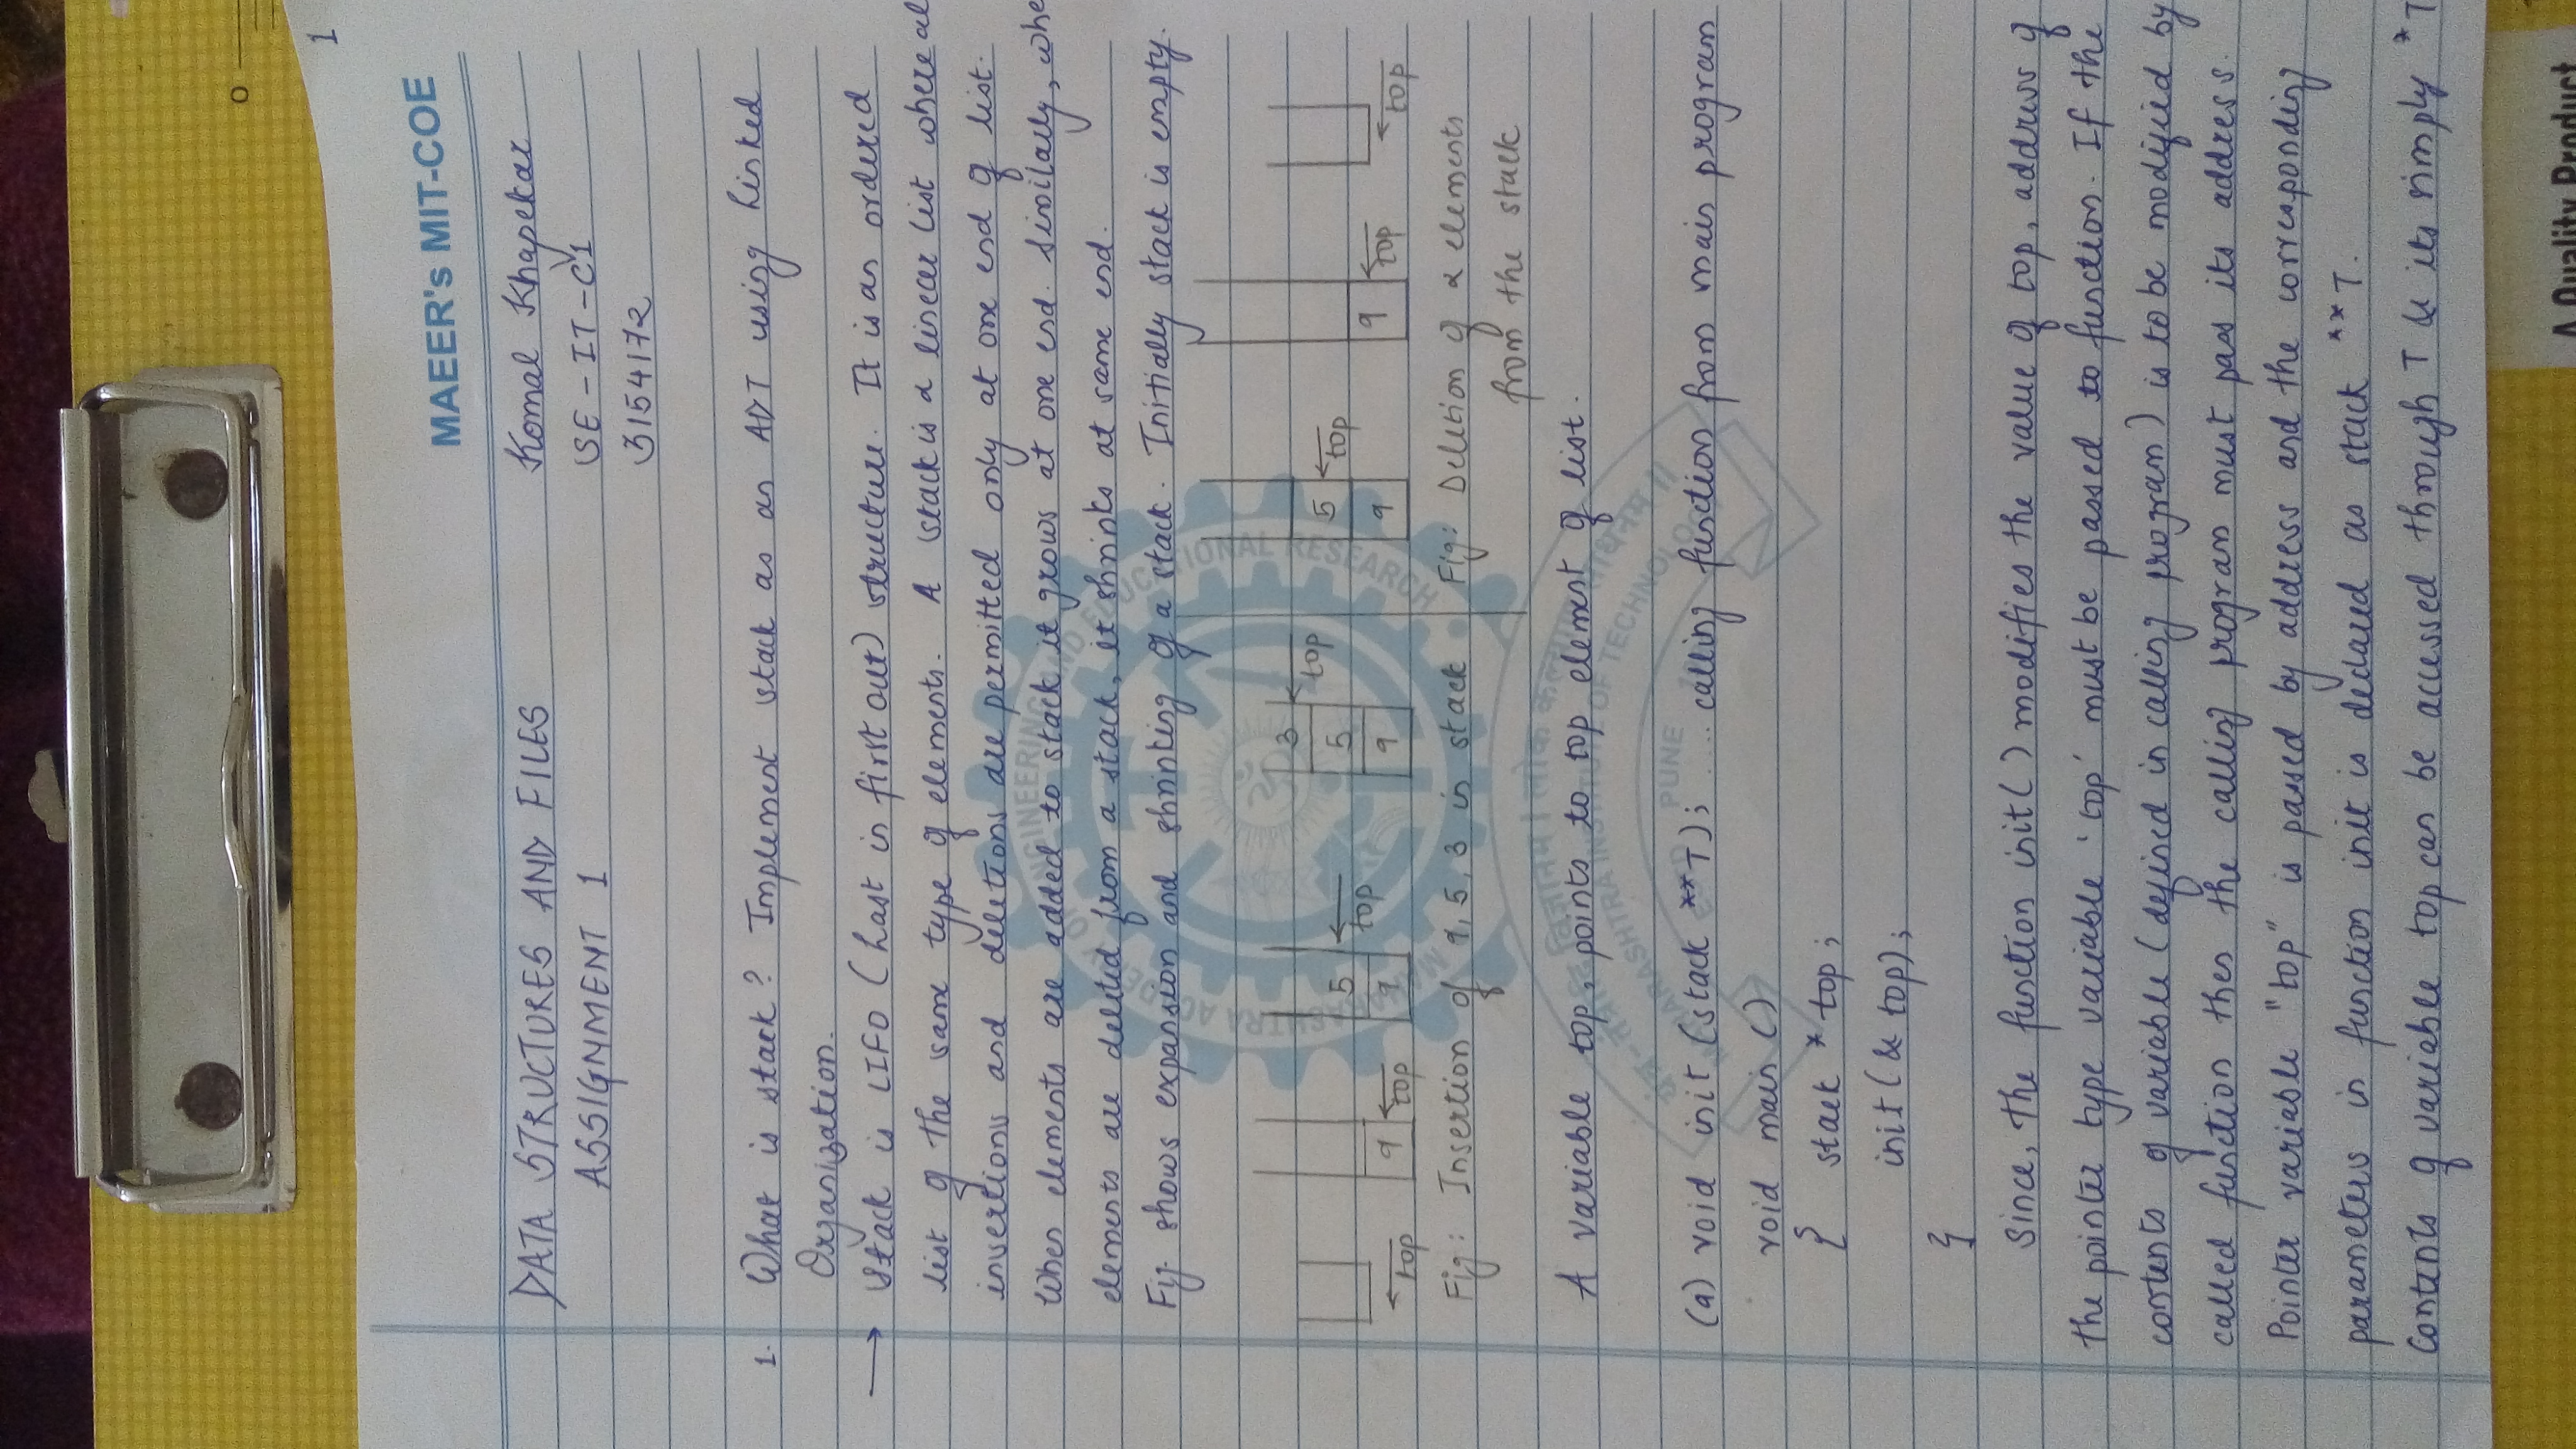 O
1
MAEER's MIT-COE
DATA STRUCTURES AND FILES
Komal Khapekar
ASSIGNMENT 1
SE - IT - C1
3154172
1. What is stack? Implement stack as an ADT using Linked
Organization.
→ Stack is LIFO (Last in first out) structure. It is an ordered
list of the same type of elements. A stack is a linear list where al
insertions and deletions are permitted only at one end of list.
When elements are added to stack it grows at one end. Similarly, whe
elements are deleted from a stack, it shrinks at same end.
Fig. shows expansion and shrinking of a stack. Initially stack is empty.
←top
9 ←top
5 ←top
9
3 ←top
5
9
5 ←top
9
9 ←top
←top
Fig: Insertion of 9, 5, 3 in stack
Fig: Deletion of 2 elements
from the stack
A variable top, points to top element of list.
(a) void init (stack **T); .... calling function from main program
void main ()
{ stack * top;
init(& top);
}
Since, the function init() modifies the value of top, address of
the pointer type variable 'top' must be passed to function. If the
contents of variable (defined in calling program) is to be modified by
called function then the calling program must pass its address.
Pointer variable "top" is passed by address and the corresponding
parameters in function init is declared as stack **T.
Contents of variable top can be accessed through T & its simply *T
MAHARASHTRA ACADEMY OF ENGINEERING AND EDUCATIONAL RESEARCH
MAHARASHTRA INSTITUTE OF TECHNOLOGY
PUNE
A Quality Product